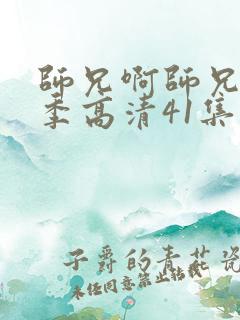 師兄啊師兄
季高清41集
子爵的青花瓷
未经同意禁止转载